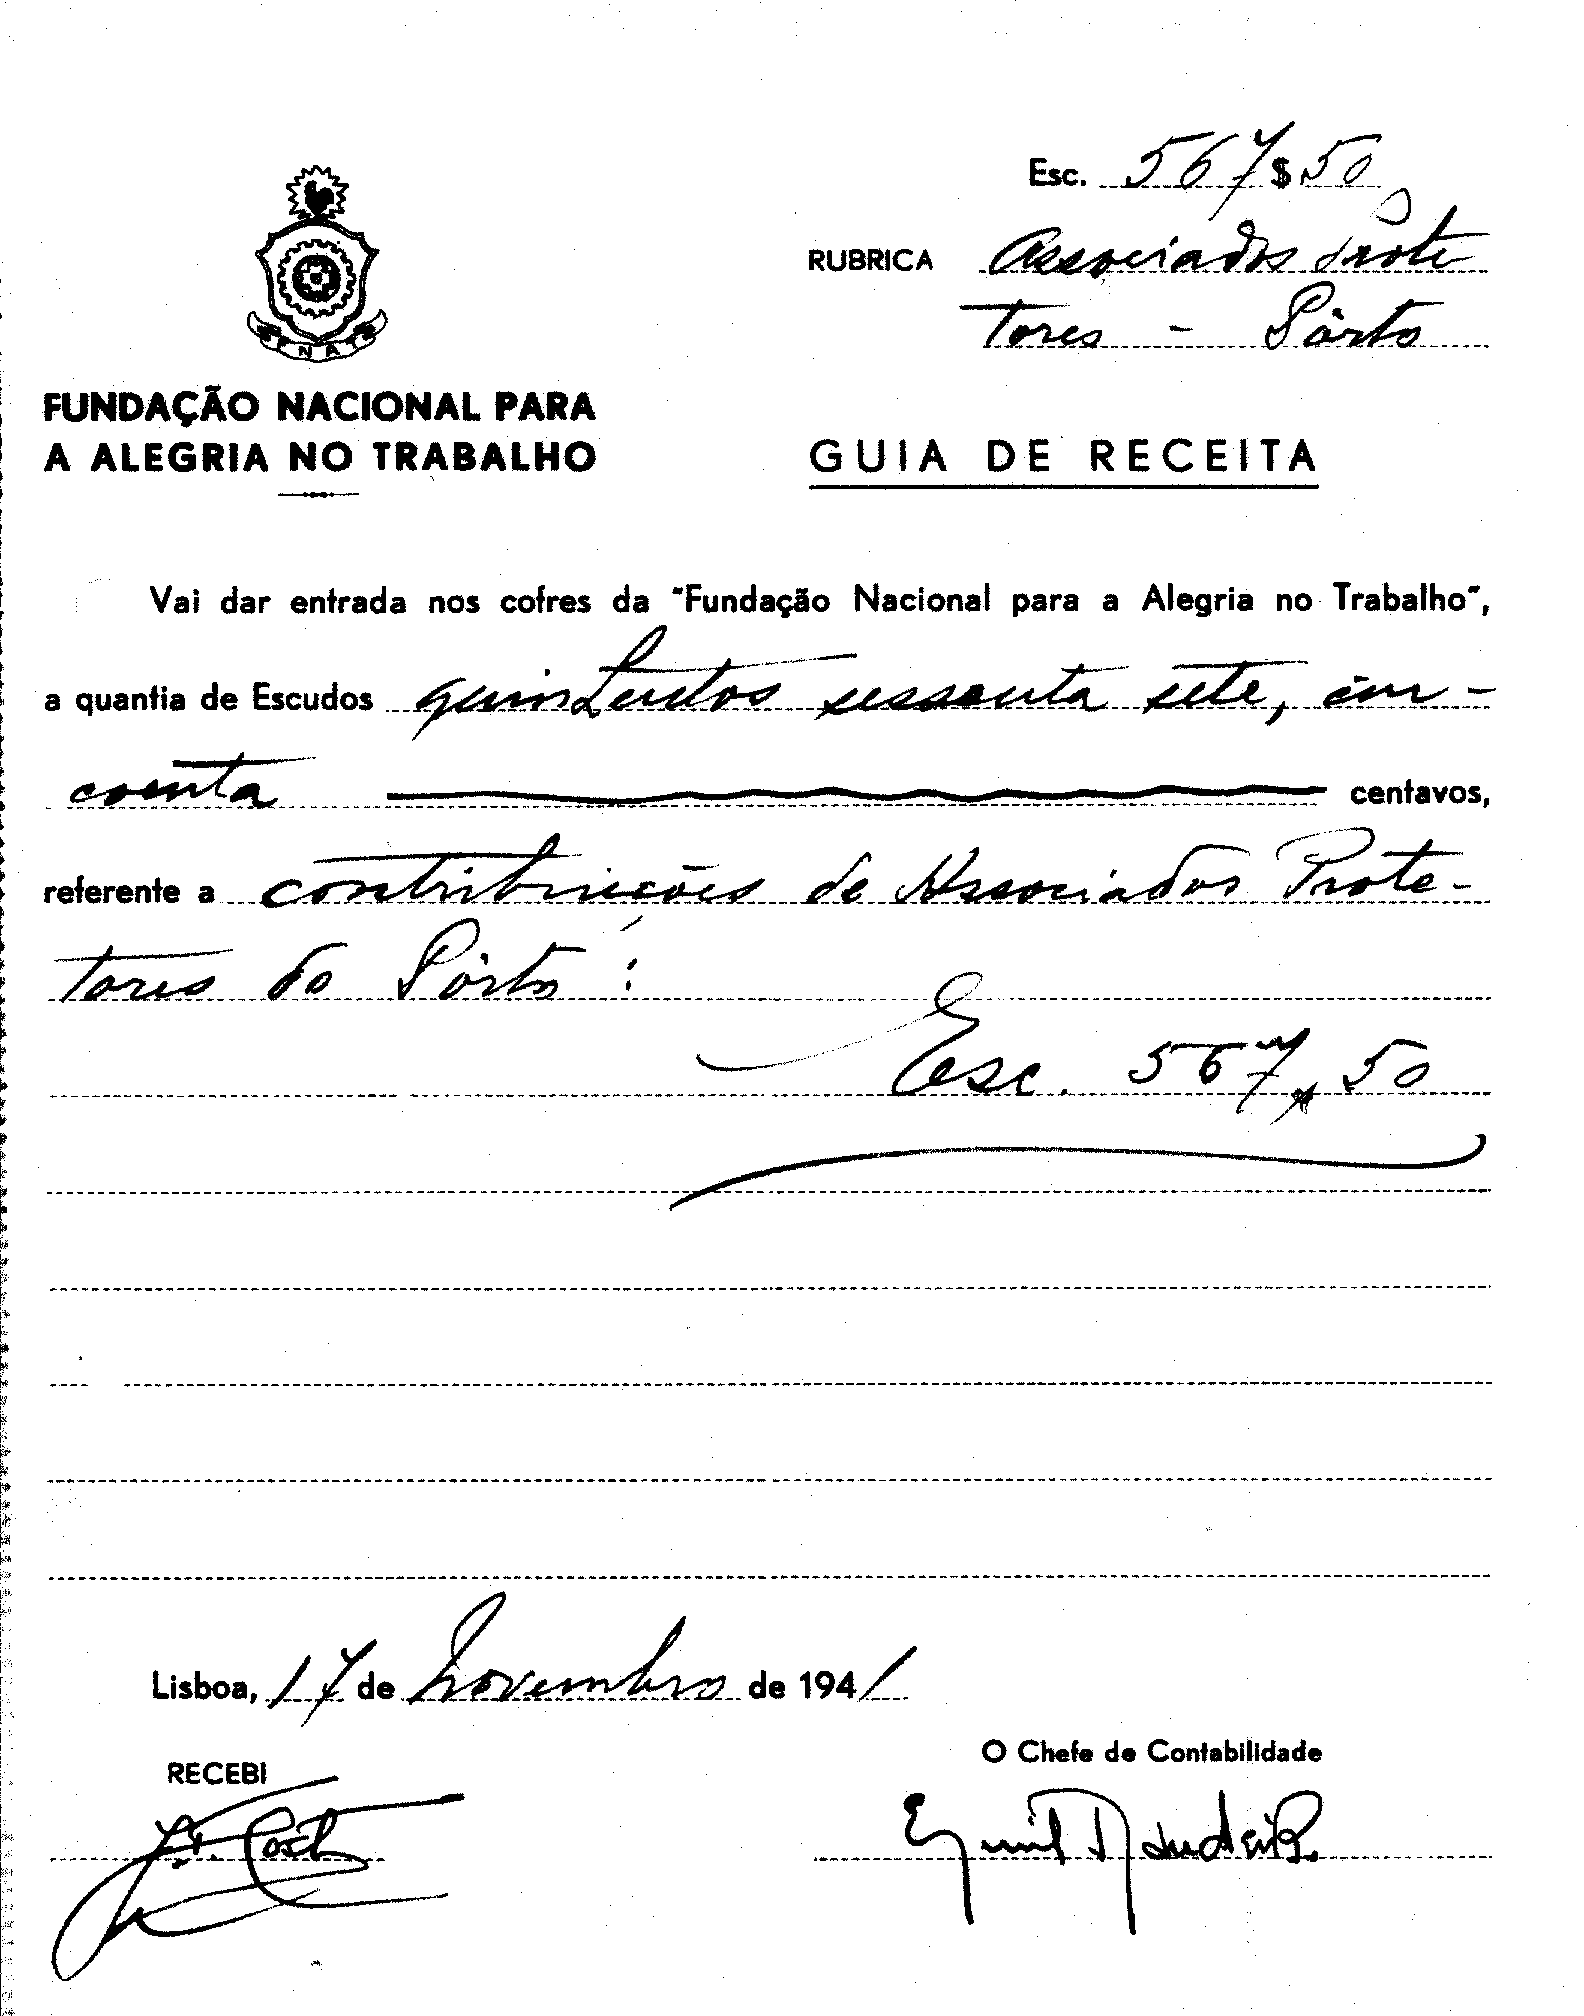 Esc. 567$50
RUBRICA Associados Prote
tores - Pôrto
FNAT
FUNDAÇÃO NACIONAL PARA
A ALEGRIA NO TRABALHO
GUIA DE RECEITA
Vai dar entrada nos cofres da "Fundação Nacional para a Alegria no Trabalho",
a quantia de Escudos quinhentos sessenta sete, cin-
coenta centavos,
referente a contribuições de Associados Prote-
tores do Pôrto:
Esc. 567$50
Lisboa, 17 de Novembro de 1941
RECEBI
O Chefe de Contabilidade
Costa